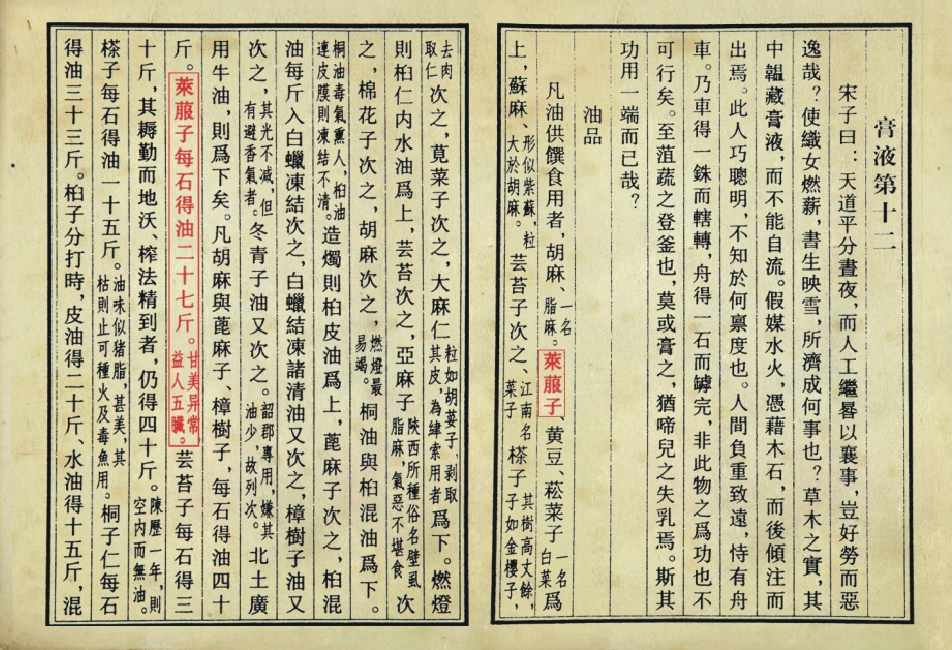 膏液第十二
宋子曰：天道平分晝夜，而人工繼晷以襄事，豈好勞而惡
逸哉？使織女燃薪，書生映雪，所濟成何事也？草木之實，其
中韞藏膏液，而不能自流。假媒水火，憑藉木石，而後傾注而
出焉。此人巧聰明，不知於何禀度也。人間負重致遠，恃有舟
車。乃車得一銖而轄轉，舟得一石而罅完，非此物之爲功也不
可行矣。至菹蔬之登釜也，莫或膏之，猶啼兒之失乳焉。斯其
功用一端而已哉？
油品
凡油供饌食用者，胡麻、一名脂麻。萊菔子、黄豆、菘菜子一名白菜爲
上，蘇麻、形似紫蘇，粒大於胡麻。芸苔子次之、江南名菜子㮛子其樹高丈餘，子如金櫻子，
去肉取仁次之，莧菜子次之，大麻仁粒如胡荽子，剥取其皮，為繂索用者爲下。燃燈
則桕仁内水油爲上，芸苔次之，亞麻子陝西所種俗名壁虱脂麻，氣惡不堪食次
之，棉花子次之，胡麻次之，燃燈最易竭。桐油與桕混油爲下。
桐油毒氣熏人，桕油連皮膜則凍結不清。造燭則桕皮油爲上，蓖麻子次之，桕混
油每斤入白蠟凍結次之，白蠟結凍諸清油又次之，樟樹子油又
次之，其光不减，但有避香氣者。冬青子油又次之。韶郡專用，嫌其油少，故列次。北土廣
用牛油，則爲下矣。凡胡麻與蓖麻子、樟樹子，每石得油四十
斤。萊菔子每石得油二十七斤。甘美异常，益人五臟。芸苔子每石得三
十斤，其耨勤而地沃、榨法精到者，仍得四十斤。陳歷一年，則空内而無油。
㮛子每石得油一十五斤。油味似猪脂，甚美，其枯則止可種火及毒魚用。桐子仁每石
得油三十三斤。桕子分打時，皮油得二十斤、水油得十五斤，混